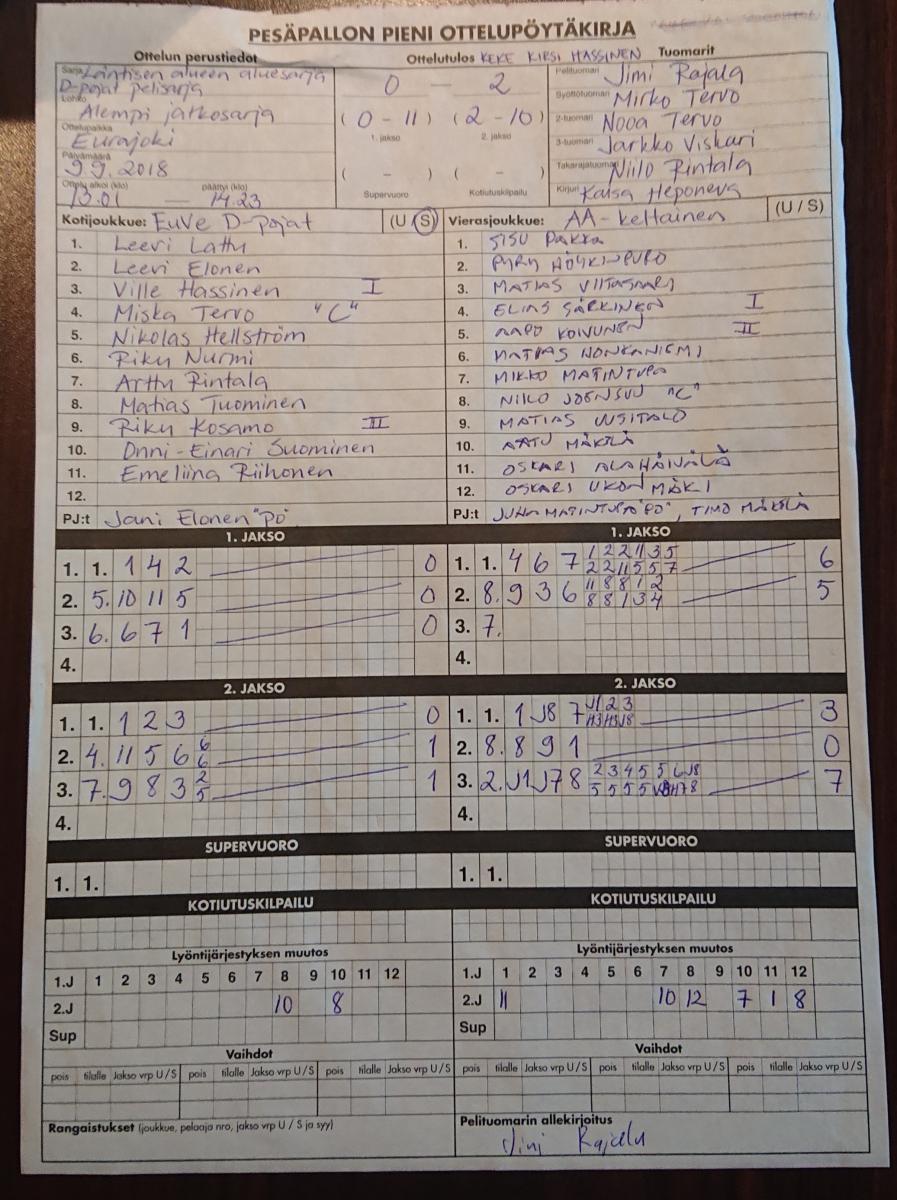 PESÄPALLON PIENI OTTELUPÖYTÄKIRJA
Ottelun perustiedot
Sarja Läntisen alueen aluesarja
D-pojat pelisarja
Lohko
Alempi jatkosarja
Ottelupaikka
Eurajoki
Päivämäärä
9.9.2018
Ottelu alkoi (klo) päättyi (klo)
13.01 — 14.23
Ottelutulos KEKE KIRSI HASSINEN
0 — 2
(0 - 11) (2 - 10)
1. jakso 2. jakso
( - ) ( - )
Supervuoro Kotiutuskilpailu
Tuomarit
Pelituomari Jimi Rajala
Syöttötuomari Mirko Tervo
2-tuomari Nooa Tervo
3-tuomari Jarkko Viskari
Takarajatuomari Niilo Rintala
Kirjuri Kaisa Heponeva
Kotijoukkue: EuVe D-pojat (U/S)
1. Leevi Lathu
2. Leevi Elonen
3. Ville Hassinen I
4. Miska Tervo "C"
5. Nikolas Hellström
6. Riku Nurmi
7. Arttu Rintala
8. Matias Tuominen
9. Riku Kosamo II
10. Onni-Einari Suominen
11. Emeliina Riihonen
12.
PJ:t Jani Elonen "PJ"
Vierasjoukkue: AA-keltainen (U/S)
1. SISU PAKKA
2. PYRY HÖYKINPURO
3. MATIAS VIITASAARI
4. ELIAS SÄRKINEN I
5. AAPO KOIVUNEN II
6. MATIAS HONKANIEMI
7. MIKKO MATINTUPA
8. NIILO JOENSUU "C"
9. MATIAS UUSITALO
10. AATU MÄKILÄ
11. OSKARI ALAHÄIVÄLÄ
12. OSKARI UKONMÄKI
PJ:t JUHA MATINTUPA "PJ", TIMO MÄKILÄ
1. JAKSO
1. 1. 1 4 2 0
2. 5. 10 11 5 0
3. 6. 6 7 1 0
4.
1. JAKSO
1. 1. 4 6 7 1 2 2 11 3 5 6
2 2 11 5 5 7
2. 8. 9 3 6 11 8 8 1 2 5
8 8 1 3 4
3. 7.
4.
2. JAKSO
1. 1. 1 2 3 0
2. 4. 11 5 6 6 1
6
3. 7. 9 8 3 2 1
5
4.
2. JAKSO
1. 1. 1 J8 7 J1 2 3 3
2. 8. 8 9 1 0
3. 2. J1 J7 8 2 3 4 5 5 6 J8 7
4.
SUPERVUORO
1. 1.
SUPERVUORO
1. 1.
KOTIUTUSKILPAILU
KOTIUTUSKILPAILU
Lyöntijärjestyksen muutos
1.J 1 2 3 4 5 6 7 8 9 10 11 12
2.J 10 8
Sup
Lyöntijärjestyksen muutos
1.J 1 2 3 4 5 6 7 8 9 10 11 12
2.J 11 10 12 7 1 8
Sup
Vaihdot
pois tilalle Jakso vrp U/S pois tilalle Jakso vrp U/S pois tilalle Jakso vrp U/S
Vaihdot
pois tilalle Jakso vrp U/S pois tilalle Jakso vrp U/S pois tilalle Jakso vrp U/S
Rangaistukset (joukkue, pelaaja nro, jakso vrp U / S ja syy)
Pelituomarin allekirjoitus
Jimi Rajala